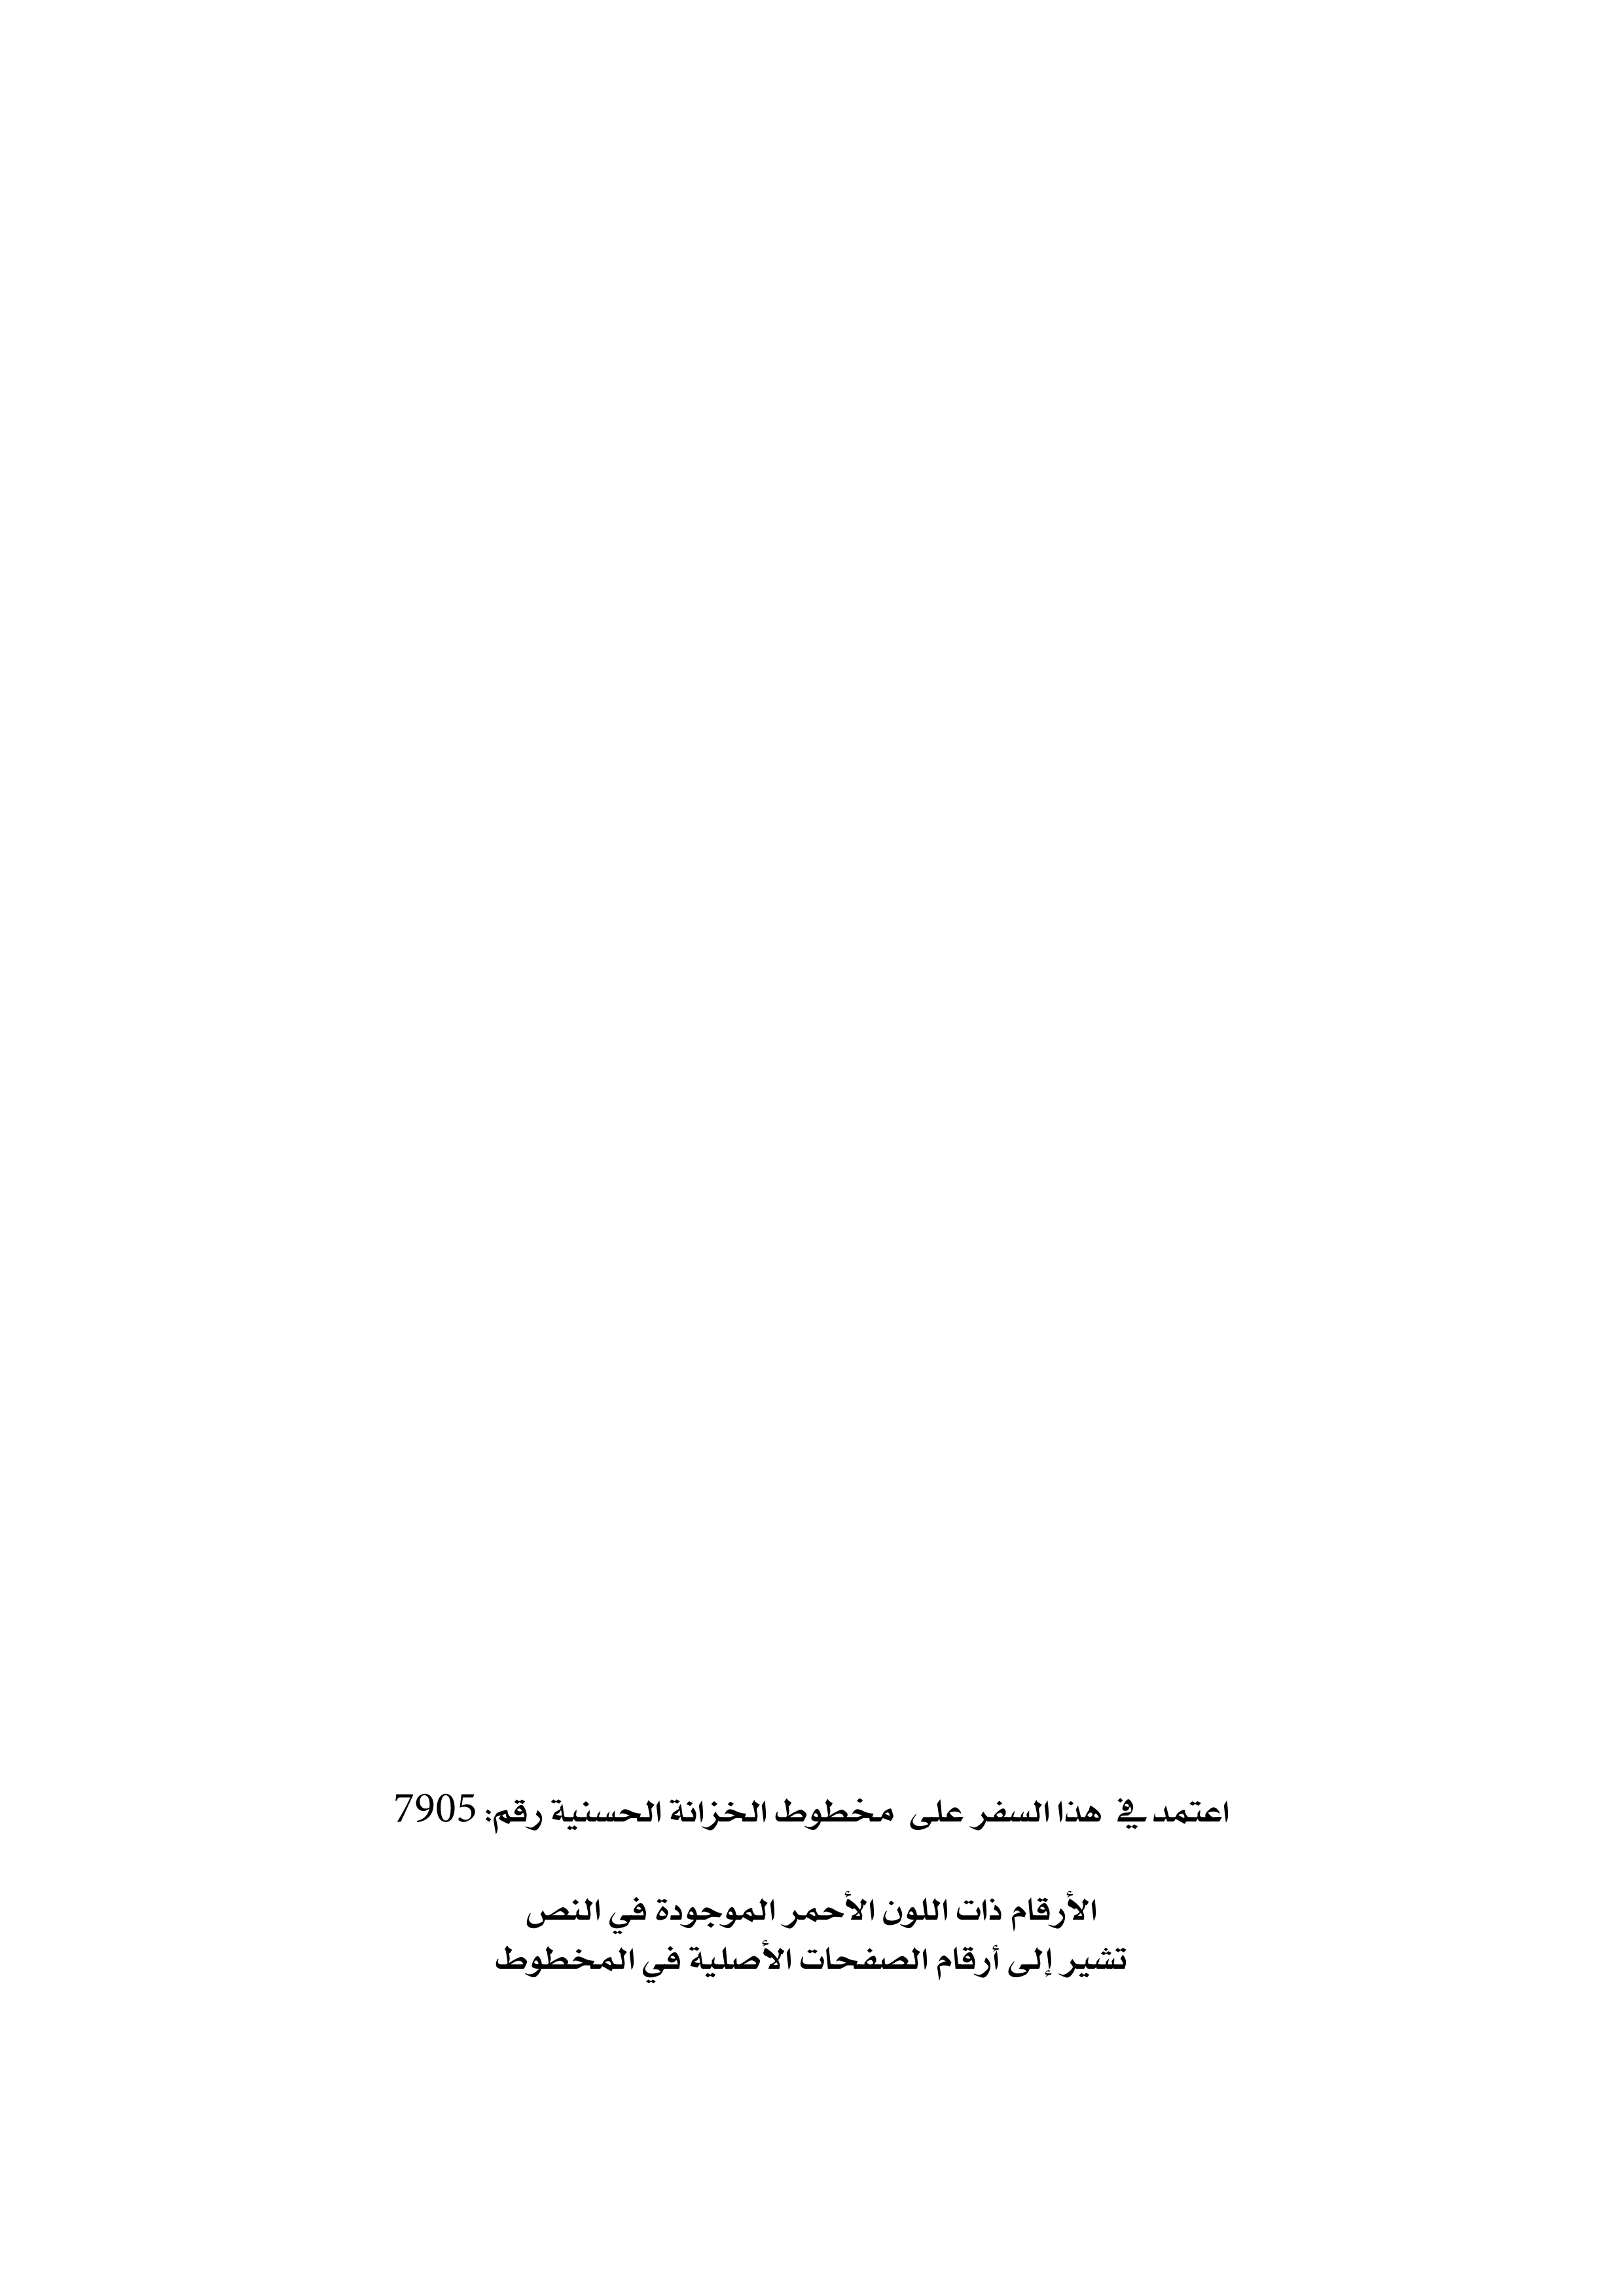 اعتمد في هذا السفر على مخطوط الخزانة الحسنية رقم: 7905
الأرقام ذات اللون الأحمر الموجودة في النص
تشير إلى أرقام الصفحات الأصلية في المخطوط